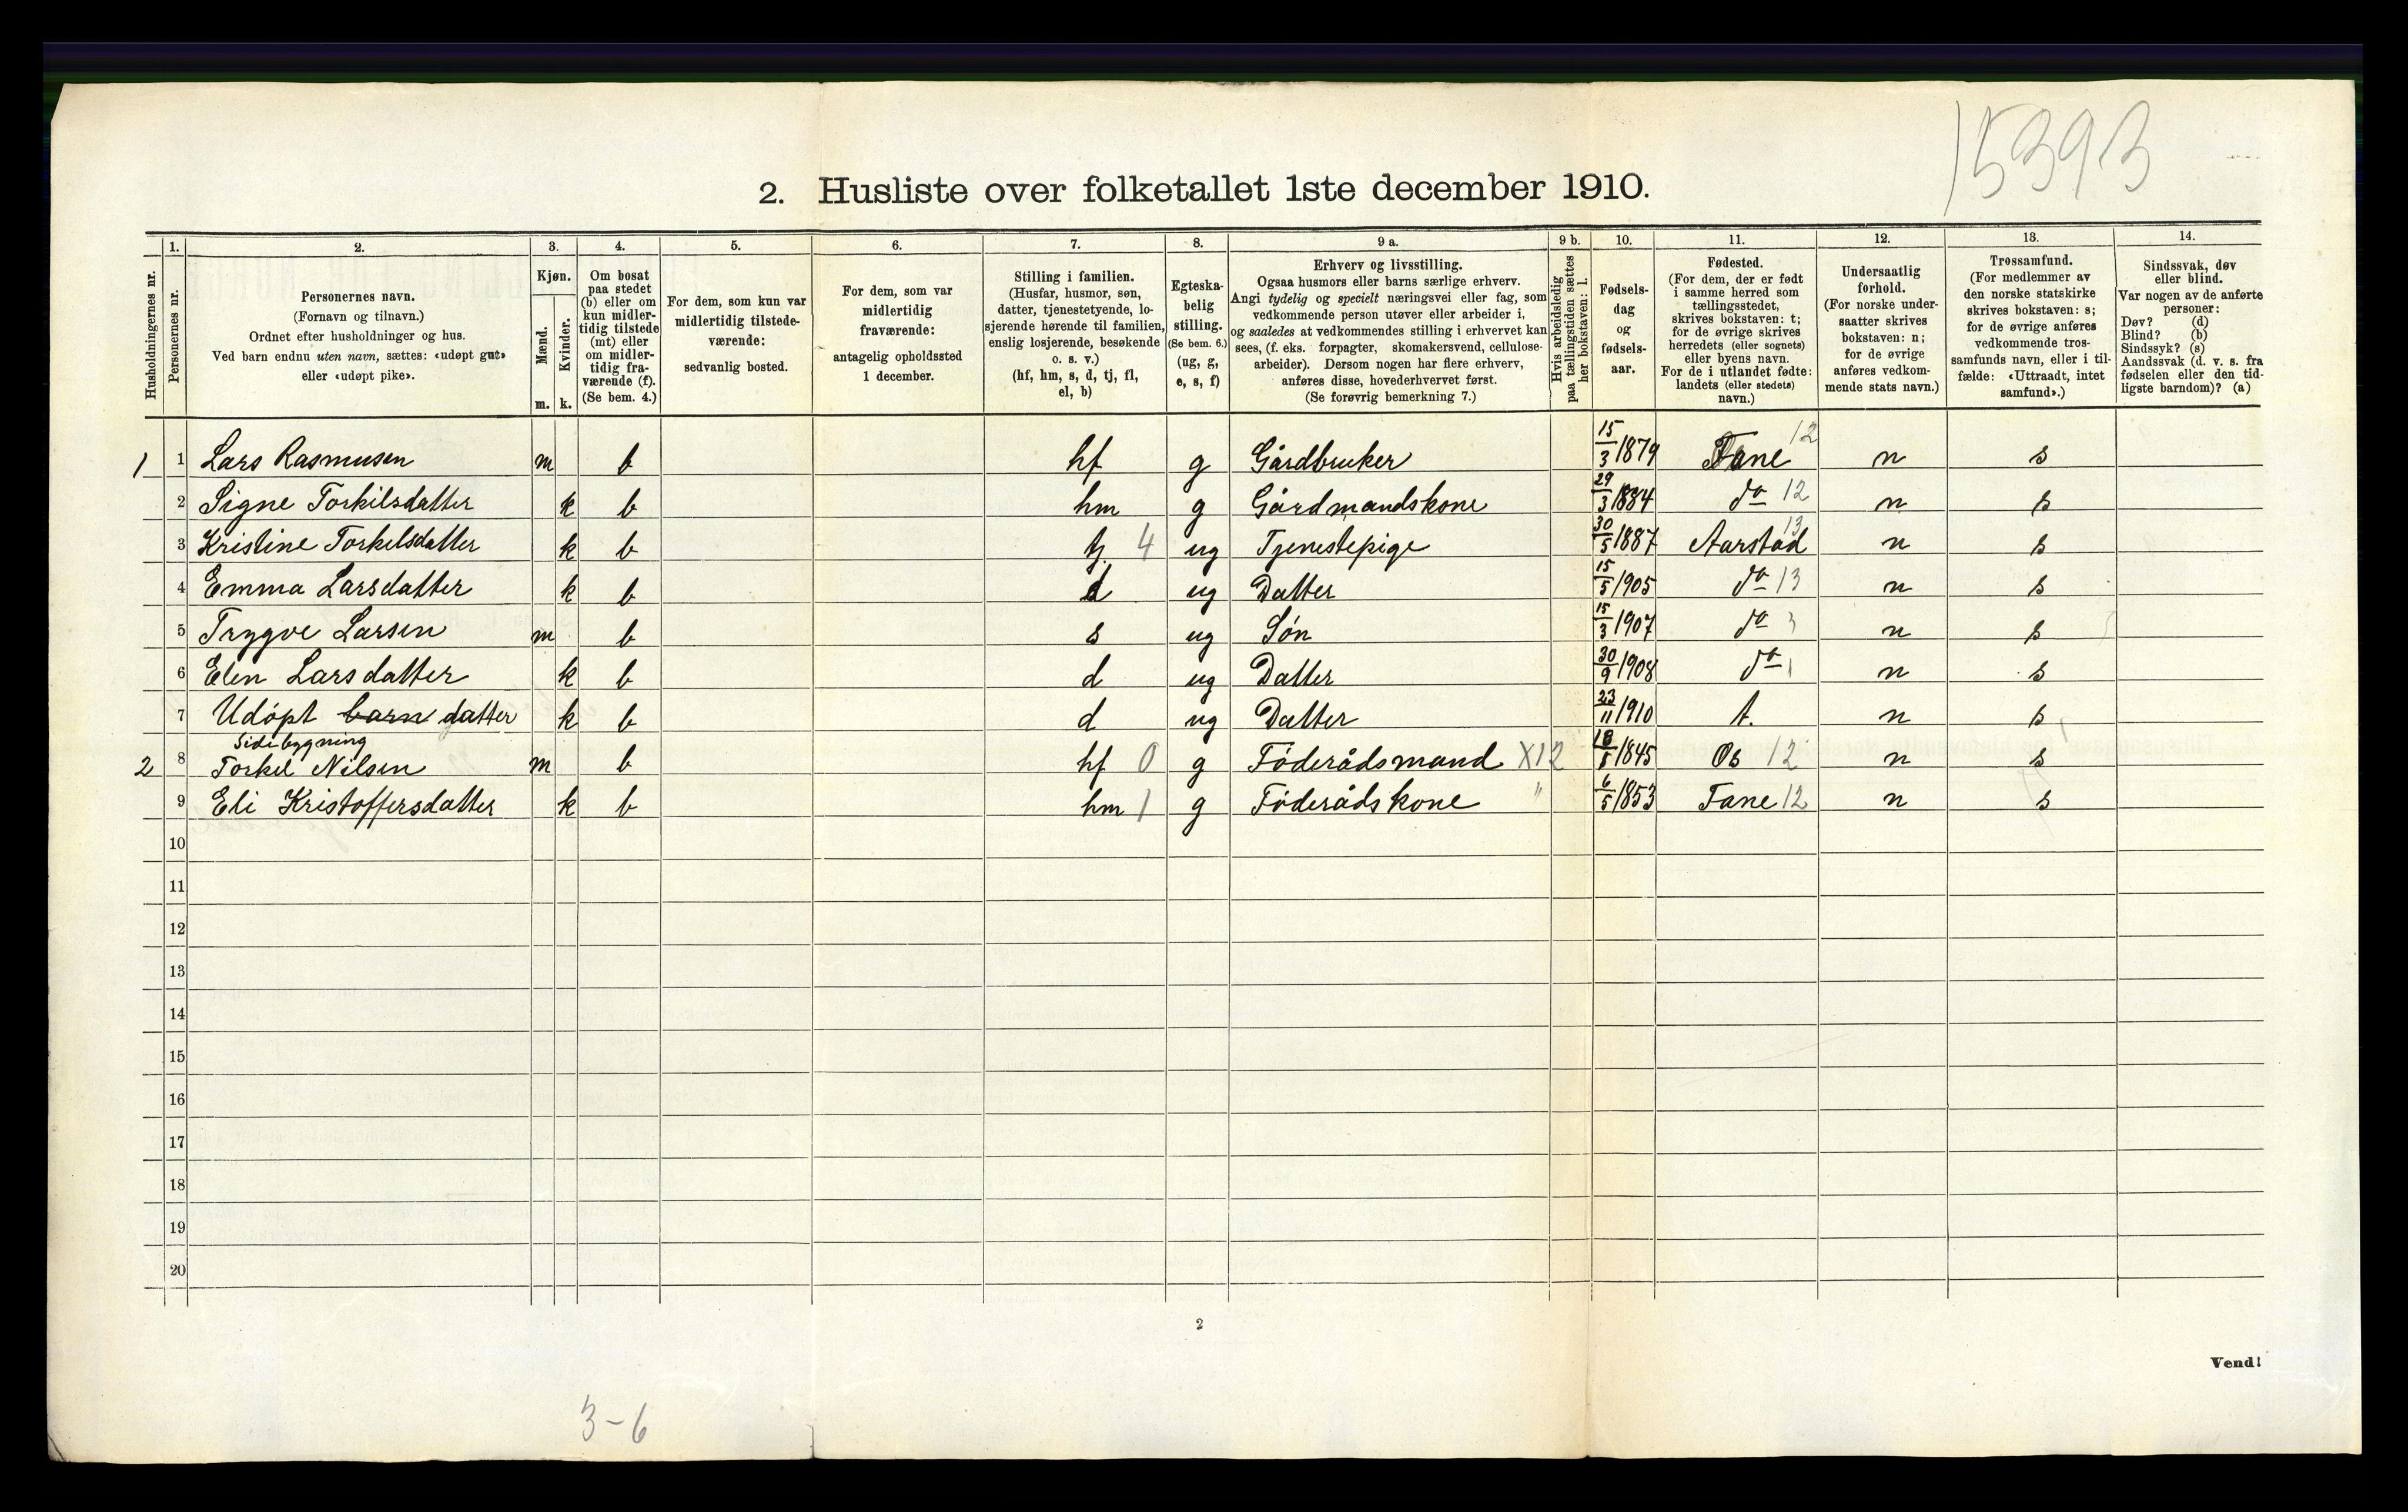 15393
2. Husliste over folketallet 1ste december 1910.
Husholdningernes nr.
1. Personernes nr.
2. Personernes navn. (Fornavn og tilnavn.) Ordnet efter husholdninger og hus. Ved barn endnu uten navn, sættes: «udøpt gut» eller «udøpt pike».
3. Kjøn. Mænd. m. Kvinder. k.
4. Om bosat paa stedet (b) eller om kun midler-tidig tilstede (mt) eller om midler-tidig fra-værende (f). (Se bem. 4.)
5. For dem, som kun var midlertidig tilstede-værende: sedvanlig bosted.
6. For dem, som var midlertidig fraværende: antagelig opholdssted 1 december.
7. Stilling i familien. (Husfar, husmor, søn, datter, tjenestetyende, lo-sjerende hørende til familien, enslig losjerende, besøkende o. s. v.) (hf, hm, s, d, tj, fl, el, b)
8. Egteska-belig stilling. (Se bem. 6.) (ug, g, e, s, f)
9 a. Erhverv og livsstilling. Ogsaa husmors eller barns særlige erhverv. Angi tydelig og specielt næringsvei eller fag, som vedkommende person utøver eller arbeider i, og saaledes at vedkommendes stilling i erhvervet kan sees, (f. eks. forpagter, skomakersvend, cellulose-arbeider). Dersom nogen har flere erhverv, anføres disse, hovederhvervet først. (Se forøvrig bemerkning 7.)
9 b. Hvis arbeidsledig paa tællingstiden sættes her bokstaven: l.
10. Fødsels-dag og fødsels-aar.
11. Fødested. (For dem, der er født i samme herred som tællingsstedet, skrives bokstaven: t; for de øvrige skrives herredets (eller sognets) eller byens navn. For de i utlandet fødte: landets (eller stedets) navn.)
12. Undersaatlig forhold. (For norske under-saatter skrives bokstaven: n; for de øvrige anføres vedkom-mende stats navn.)
13. Trossamfund. (For medlemmer av den norske statskirke skrives bokstaven: s; for de øvrige anføres vedkommende tros-samfunds navn, eller i til-fælde: «Uttraadt, intet samfund».)
14. Sindssvak, døv eller blind. Var nogen av de anførte personer: Døv? (d) Blind? (b) Sindssyk? (s) Aandssvak (d. v. s. fra fødselen eller den tid-ligste barndom)? (a)
1 1 Lars Rasmusen m b hf g Gårdbruker 15/3 1879 Fane 12 n s
2 Signe Torkilsdatter k b hm g Gårdmandskone 29/3 1884 do 12 n s
3 Kristine Torkelsdatter k b tj. 4 ug Tjenestepige 30/5 1887 Aarstad 13 n s
4 Emma Larsdatter k b d ug Datter 15/5 1905 do 13 n s
5 Trygve Larsen m b s ug Søn 15/3 1907 do 3 n s
6 Elen Larsdatter k b d ug Datter 30/9 1908 do 1 n s
7 Udøpt barn datter k b d ug Datter 23/11 1910 t. n s
Sidebygning
2 8 Torkel Nilsen m b hf 0 g Føderådsmand X12 18/5 1845 Os 12 n s
9 Eli Kristoffersdatter k b hm 1 g Føderådskone " 6/5 1853 Fane 12 n s
10
11
12
13
14
15
16
17
18
19
20
2
Vend!
3-6